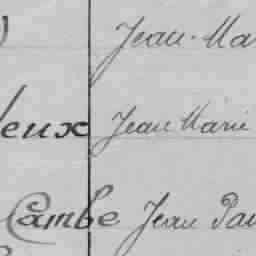 Jean-Ma
eux Jean Marie
Cambe Jean Pau